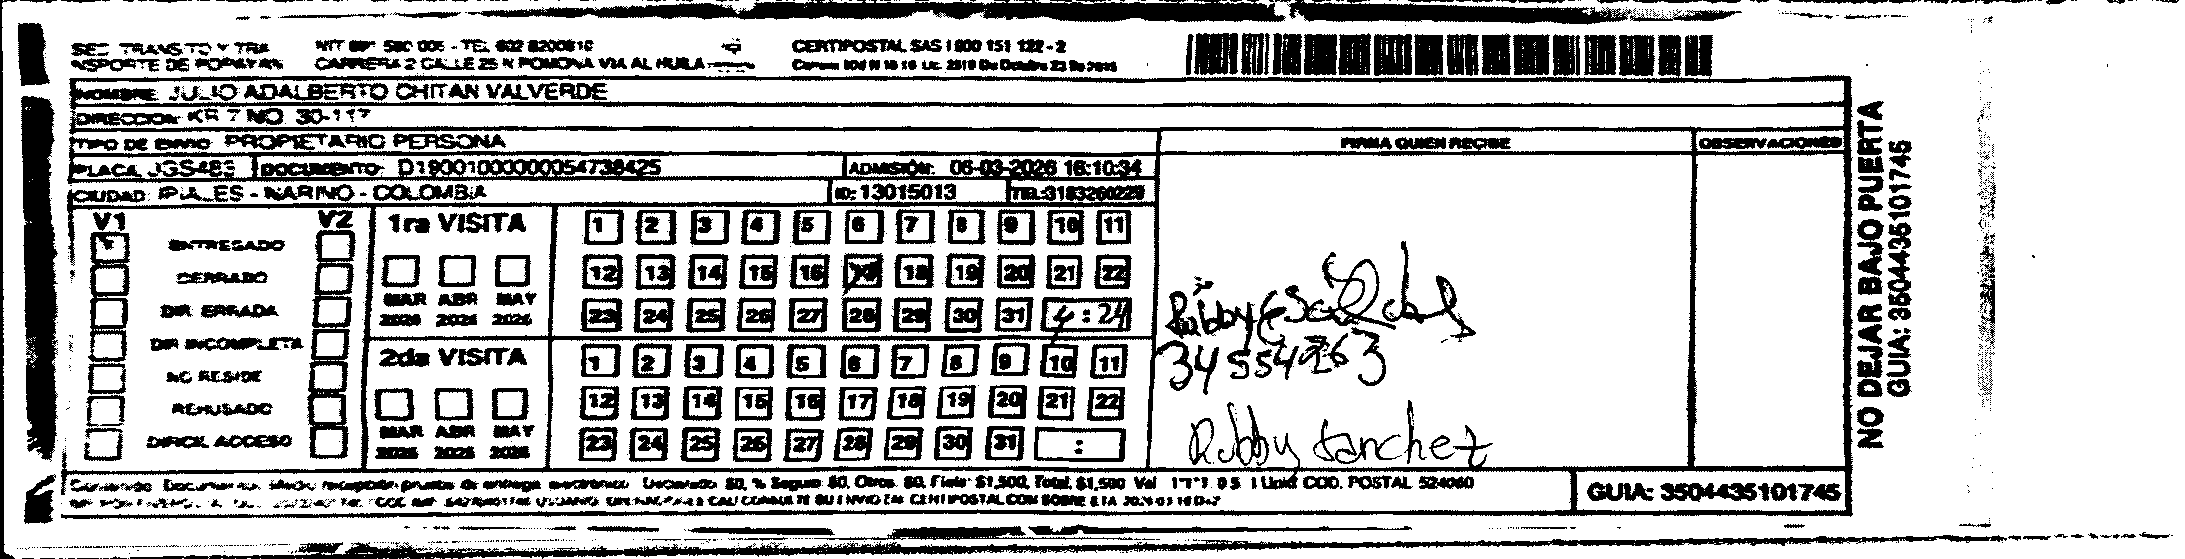 SEC TRANSITO Y TRA
NSPORTE DE POPAYAN
NIT 891 580 006 - TEL 602 8200610
CARRERA 2 CALLE 25 N POMONA VIA AL HUILA
CERTIPOSTAL SAS | 800 151 122 - 2
NOMBRE: JULIO ADALBERTO CHITAN VALVERDE
DIRECCION: KR 7 NO 30-117
TIPO DE ENVIO: PROPIETARIO PERSONA
FIRMA QUIEN RECIBE
OBSERVACIONES
PLACA: JGS483 DOCUMENTO: D19001000000054738425 ADMISIÓN: 06-03-2026 16:10:34
CIUDAD: IPIALES - NARINO - COLOMBIA ID: 13015013 TEL:3183260229
V1 V2
ENTREGADO
CERRADO
DIR ERRADA
DIR INCOMPLETA
NO RESIDE
REHUSADO
DIFICIL ACCESO
1ra VISITA
MAR ABR MAY
2026 2026 2026
1 2 3 4 5 6 7 8 9 10 11
12 13 14 15 16 18 19 20 21 22
23 24 25 26 27 28 29 30 31 4:24
2da VISITA
MAR ABR MAY
2026 2026 2026
1 2 3 4 5 6 7 8 9 10 11
12 13 14 15 16 17 18 19 20 21 22
23 24 25 26 27 28 29 30 31 :
34554263
Rubby Sanchez
Contenido: Documentos, recepción prueba de entrega electrónico $0, % Seguro $0, Otros. $0, Flete: $1,500, Total. $1,500 1 Unid COD. POSTAL 524060
GUIA: 3504435101745
NO DEJAR BAJO PUERTA
GUIA: 3504435101745